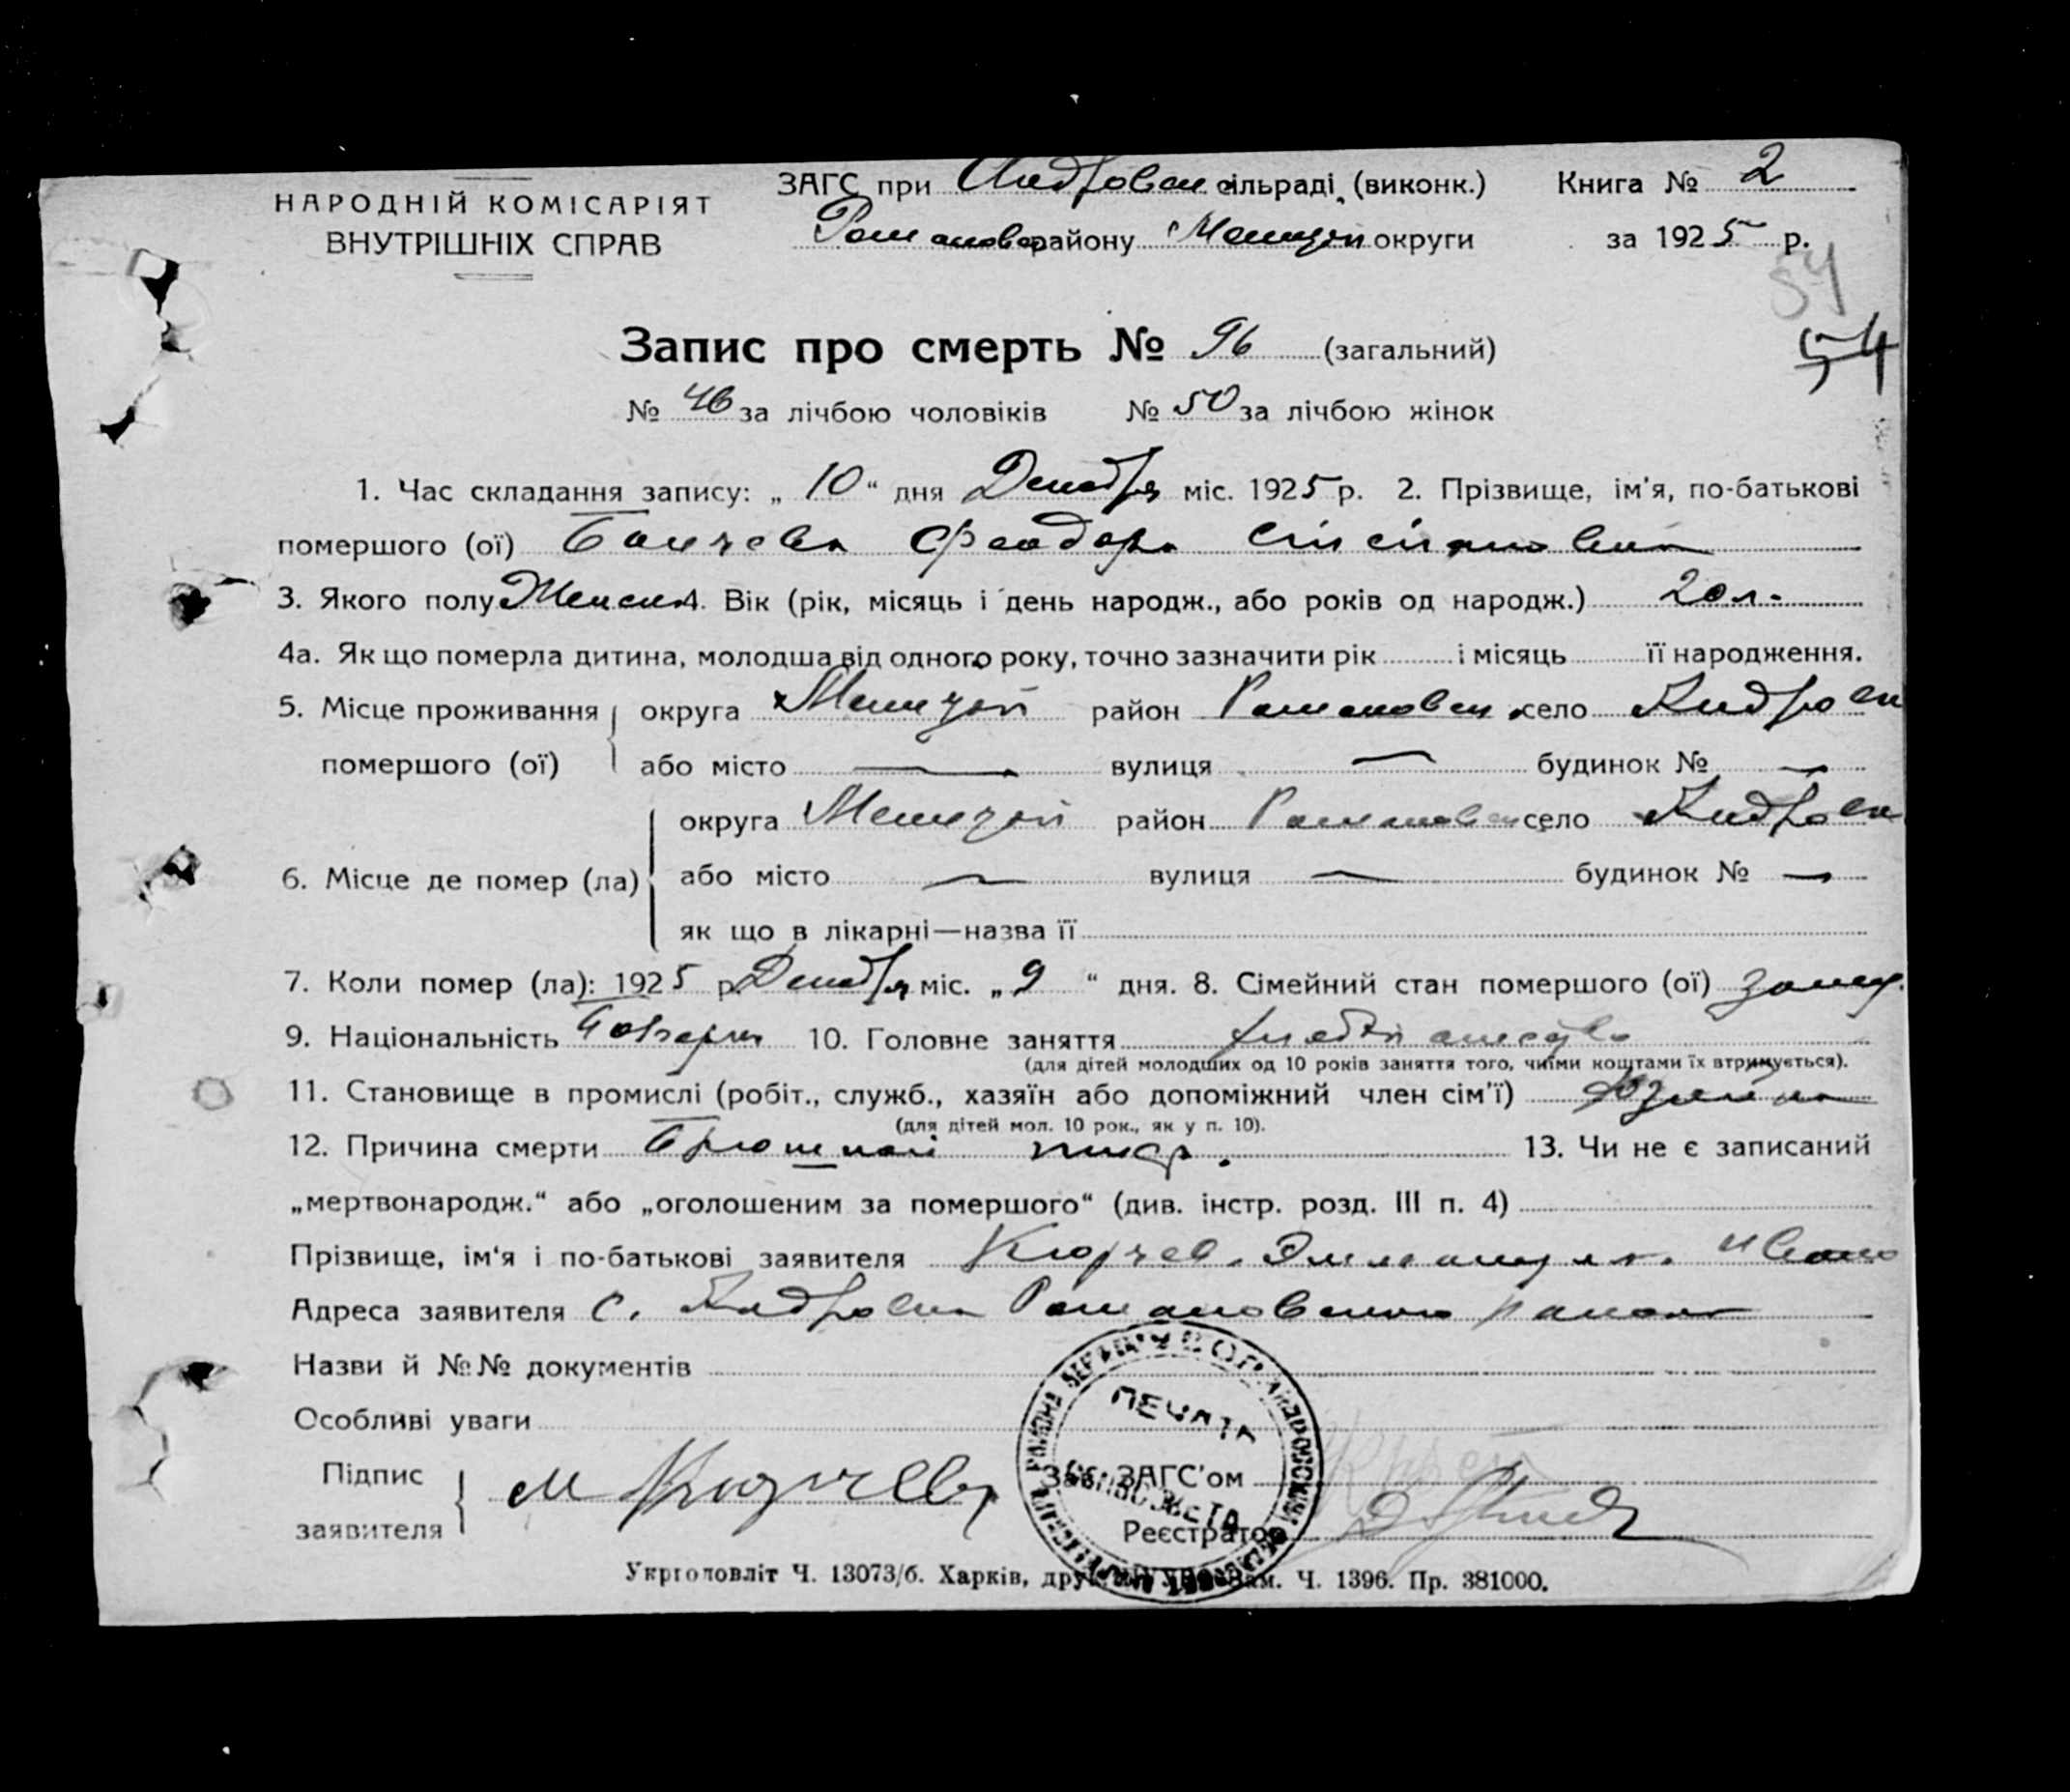 НАРОДНІЙ КОМІСАРІЯТ
ВНУТРІШНІХ СПРАВ
ЗАГС при Андровск сільраді (виконк.)
Романовск району Мелитоп округи
Книга № 2
за 1925 р.
54
54
Запис про смерть № 96 (загальний)
№ 46 за лічбою чоловіків № 50 за лічбою жінок
1. Час складання запису: „ 10 “ дня Декабря міс. 1925 р. 2. Прізвище, ім'я, по-батькові
помершого (ої) Феодора Степановна
3. Якого полу Женск 4. Вік (рік, місяць і день народж., або років од народж.) 20 л.
4а. Як що померла дитина, молодша від одного року, точно зазначити рік і місяць її народження.
5. Місце проживання округа район Романовск село Андровк
помершого (ої) або місто — вулиця — будинок № —
округа район Романовск село Андровк
6. Місце де помер (ла) або місто — вулиця — будинок № —
як що в лікарні—назва її
7. Коли помер (ла): 1925 р. Декабря міс. „ 9 “ дня. 8. Сімейний стан помершого (ої) замуж.
9. Національність Болгарка 10. Головне заняття
(для дітей молодших од 10 років заняття того, чиїми коштами їх втримується).
11. Становище в промислі (робіт., служб., хазяїн або допоміжний член сім'ї) хозяйка
(для дітей мол. 10 рок., як у п. 10).
12. Причина смерти Брюшной тиф. 13. Чи не є записаний
„мертвонародж.“ або „оголошеним за помершого“ (див. інстр. розд. III п. 4)
Прізвище, ім'я і по-батькові заявителя Кюрчев Ивано
Адреса заявителя С. Андровка Романовского района
Назви й №№ документів
Особливі уваги
Підпис
заявителя М Кюрчев
Зав. ЗАГС'ом
Реєстратор
ПЕЧАТЬ
СЕЛЬСОВЕТА
Укрголовліт Ч. 13073/б. Харків, Зам. Ч. 1396. Пр. 381000.